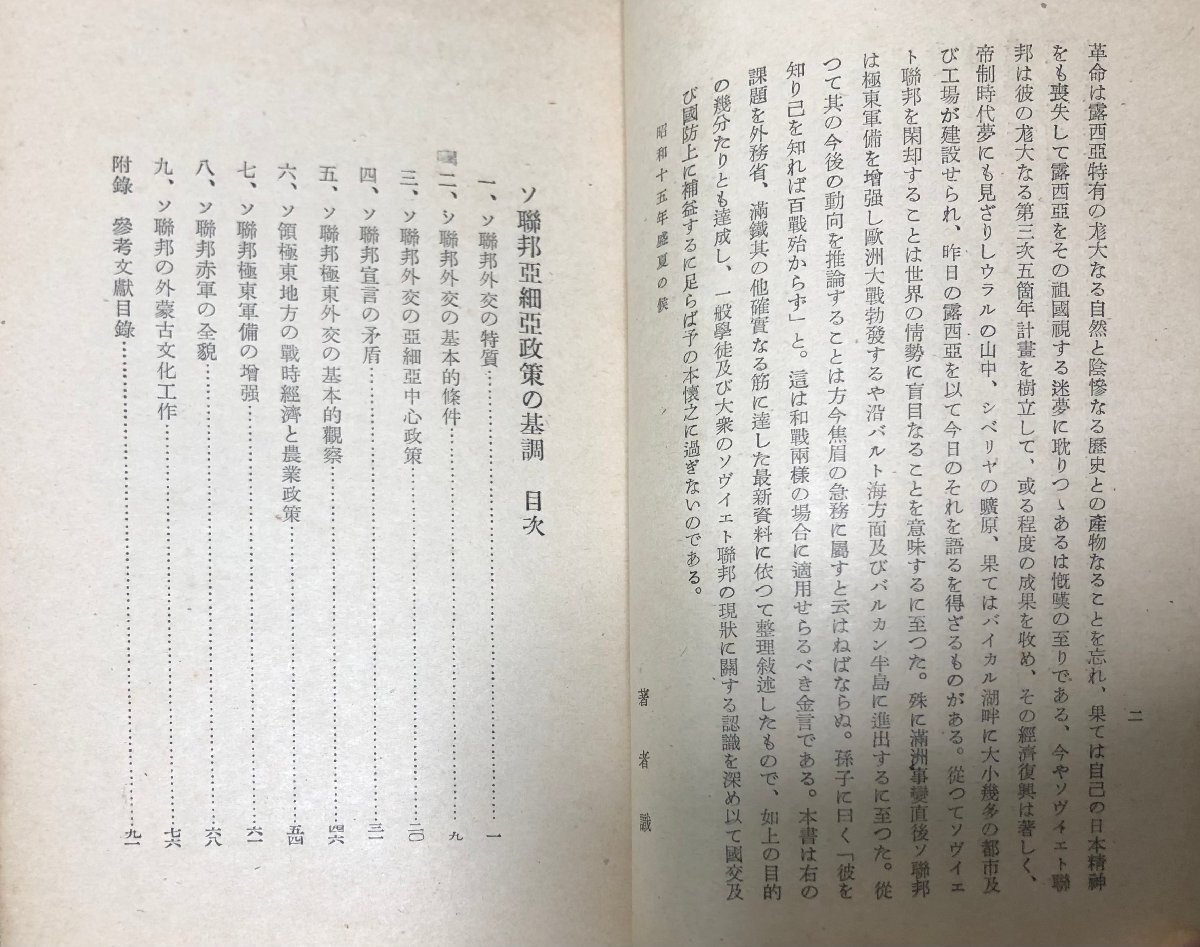 二
革命は露西亞特有の尨大なる自然と陰慘なる歷史との產物なることを忘れ、果ては自己の日本精神
をも喪失して露西亞をその祖國視する迷夢に耽りつゝあるは慨嘆の至りである、今やソヴイエト聯
邦は彼の尨大なる第三次五箇年計畫を樹立して、或る程度の成果を收め、その經濟復興は著しく、
帝制時代夢にも見ざりしウラルの山中、シベリヤの曠原、果てはバイカル湖畔に大小幾多の都市及
び工場が建設せられ、昨日の露西亞を以て今日のそれを語るを得ざるものがある。從つてソヴイエ
ト聯邦を閑却することは世界の情勢に盲目なることを意味するに至つた。殊に滿洲事變直後ソ聯邦
は極東軍備を增强し歐洲大戰勃發するや沿バルト海方面及びバルカン半島に進出するに至つた。從
つて其の今後の動向を推論することは方今焦眉の急務に屬すと云はねばならぬ。孫子に曰く「彼を
知り己を知れば百戰殆からず」と。這は和戰兩樣の場合に適用せらるべき金言である。本書は右の
課題を外務省、滿鐵其の他確實なる筋に達した最新資料に依つて整理敍述したもので、如上の目的
の幾分たりとも達成し、一般學徒及び大衆のソヴイエト聯邦の現狀に關する認識を深め以て國交及
び國防上に補益するに足らば予の本懷之に過ぎないのである。
昭和十五年盛夏の候
著者識
ソ聯邦亞細亞政策の基調 目次
一、ソ聯邦外交の特質…………一
二、ソ聯邦外交の基本的條件…………九
三、ソ聯邦外交の亞細亞中心政策…………二〇
四、ソ聯邦宣言の矛盾…………三一
五、ソ聯邦極東外交の基本的觀察…………四六
六、ソ領極東地方の戰時經濟と農業政策…………五四
七、ソ聯邦極東軍備の增强…………六一
八、ソ聯邦赤軍の全貌…………六八
九、ソ聯邦の外蒙古文化工作…………七六
附錄 參考文獻目錄…………九一